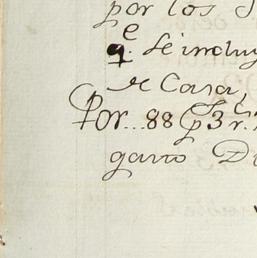 por los
q.e se incluy
de Casa,
Por... 88 p.s 3 r.s
garro D